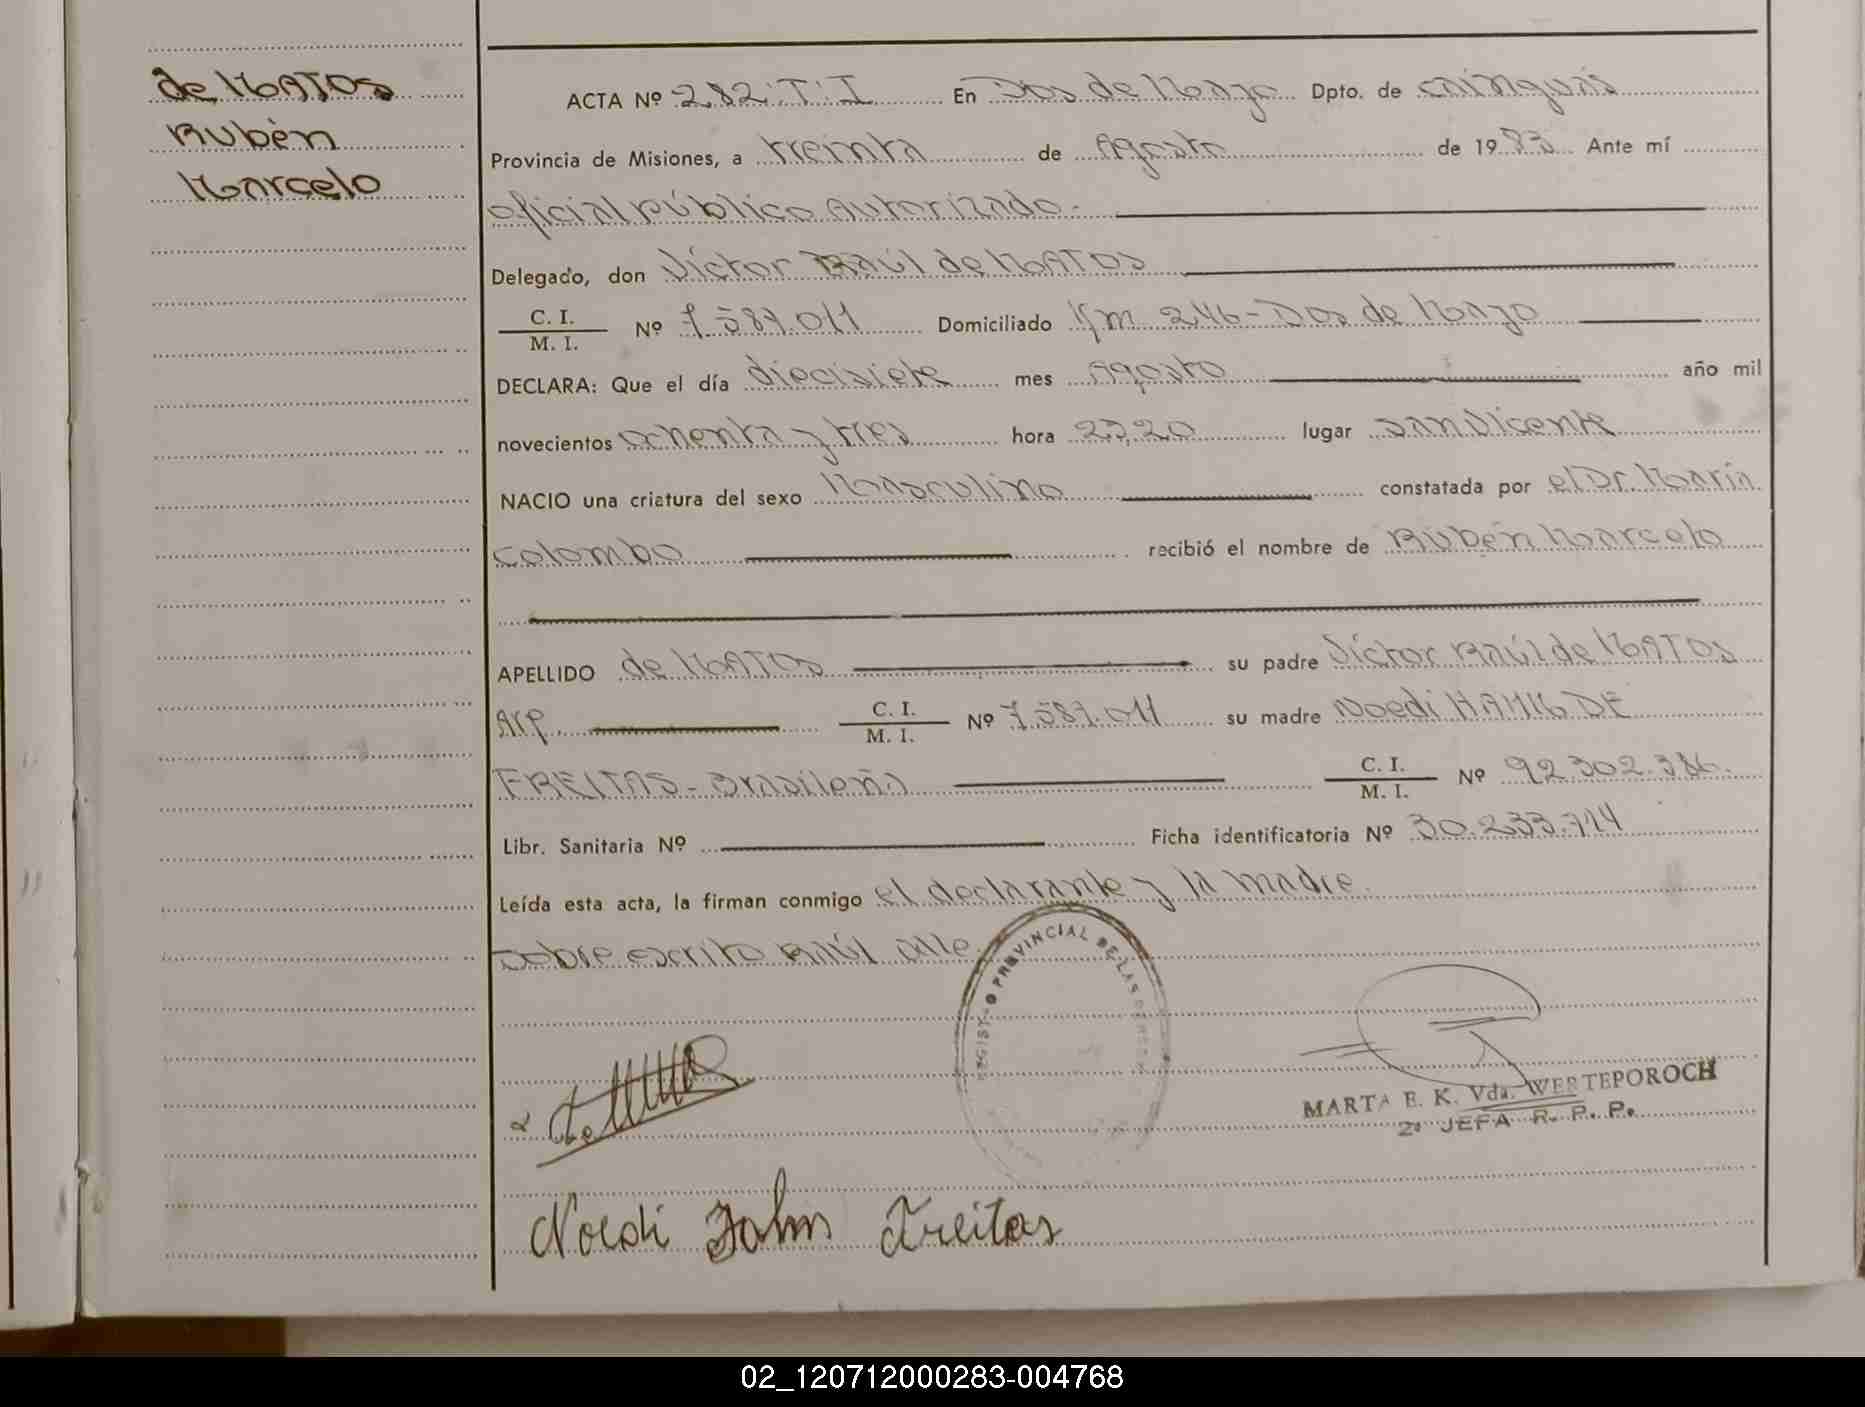 de MATOS
Rubén
Marcelo
ACTA Nº 282.T.I En Dos de Mayo Dpto. de Cainguás
Provincia de Misiones, a treinta de Agosto de 1983 Ante mí
oficial público Autorizado.
Delegado, don Víctor Raúl de MATOS
C. I.
M. I. Nº 7.587.011 Domiciliado Km 246-Dos de Mayo
DECLARA: Que el día diecisiete mes Agosto año mil
novecientos ochenta y tres hora 23,20 lugar San Vicente
NACIO una criatura del sexo Masculino constatada por el Dr. María
Colombo recibió el nombre de Rubén Marcelo
APELLIDO de MATOS su padre Víctor Raúl de MATOS
Arg. C. I.
M. I. Nº 7.587.011 su madre Noedi
FREITAS - Brasileña C. I.
M. I. Nº 92.302.386.
Libr. Sanitaria Nº Ficha identificatoria Nº 30.233.714
Leída esta acta, la firman conmigo el declarante y la madre.
Sobre escrito Raúl vale.
REGISTRO PROVINCIAL DE LAS
MARTA E. K. Vda. WERTEPOROCH
2º JEFA R. P. P.
Noedi John Freitas
02_120712000283-004768